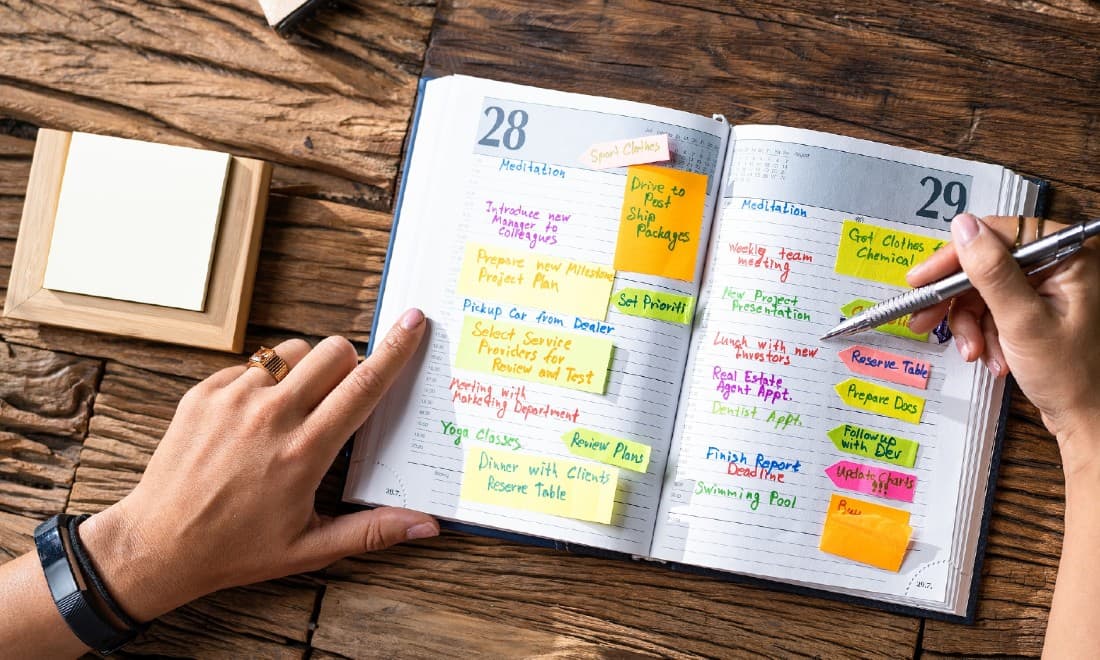 28
Sport Clothes
Meditation
Drive to
Post
Ship
Packages
Introduce new
Manager to
Colleagues
Prepare new Milestone
Project Plan
Set Prioriti
Pickup Car from Dealer
Select Service
Providers for
Review and Test
Meeting with
Marketing Department
Yoga Classes
Review Plans
Dinner with Clients
Reserve Table
29
Meditation
Get Clothes f
Chemical
Weekly team
meeting
New Project
Presentation
Lunch with new
Investors
Reserve Table
Real Estate
Agent Appt.
Prepare Docs
Dentist Appt.
Follow up
with Dev
Finish Report
Deadline
Update Charts
!!!
Swimming Pool
Buy
29.7.